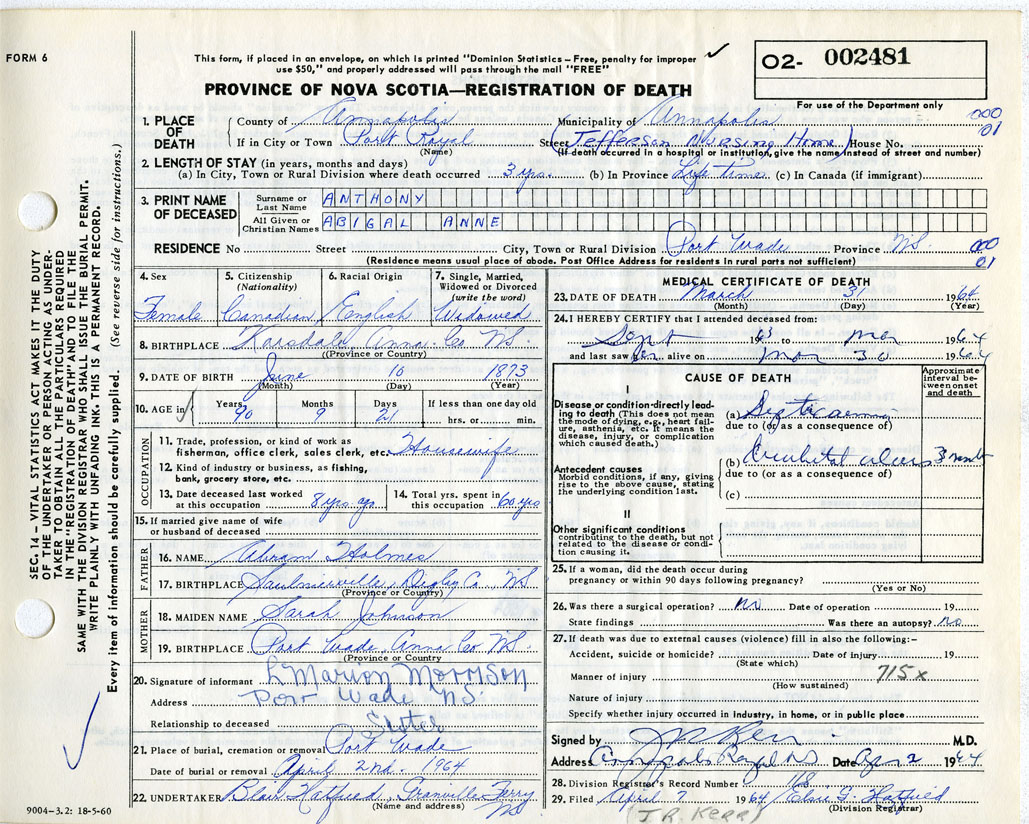 FORM 6
This form, if placed in an envelope, on which is printed "Dominion Statistics – Free, penalty for improper
use $50," and properly addressed will pass through the mail "FREE"
PROVINCE OF NOVA SCOTIA—REGISTRATION OF DEATH
O2- 002481
For use of the Department only
1. PLACE OF DEATH
County of Annapolis Municipality of Annapolis 000
If in City or Town Port Royal Street (Jefferson Nursing Home) House No. 01
(Name) (If death occurred in a hospital or institution, give the name instead of street and number)
2. LENGTH OF STAY (in years, months and days)
(a) In City, Town or Rural Division where death occurred 3 yrs. (b) In Province Life time (c) In Canada (if immigrant)
3. PRINT NAME OF DECEASED
Surname or Last Name ANTHONY
All Given or Christian Names ABIGAL ANNE
RESIDENCE No Street City, Town or Rural Division Port Wade Province N.S. 000
(Residence means usual place of abode. Post Office Address for residents in rural parts not sufficient) 01
4. Sex 5. Citizenship (Nationality) 6. Racial Origin 7. Single, Married, Widowed or Divorced (write the word)
Female Canadian English Widowed
8. BIRTHPLACE Karsdale Anna Co N.S.
(Province or Country)
9. DATE OF BIRTH June 10 1873
(Month) (Day) (Year)
10. AGE in Years Months Days If less than one day old
90 9 21 hrs. or min.
OCCUPATION
11. Trade, profession, or kind of work as
fisherman, office clerk, sales clerk, etc. Housewife
12. Kind of industry or business, as fishing,
bank, grocery store, etc.
13. Date deceased last worked at this occupation 8 yrs ago 14. Total yrs. spent in this occupation 60 yrs
15. If married give name of wife
or husband of deceased
FATHER
16. NAME Abram Holmes
17. BIRTHPLACE Saulnierville, Digby Co NS
(Province or Country)
MOTHER
18. MAIDEN NAME Sarah Johnson
19. BIRTHPLACE Port Wade, Anna Co N.S.
(Province or Country)
20. Signature of informant L Marion Morrison
Address Port Wade NS.
Relationship to deceased Sister
21. Place of burial, cremation or removal Port Wade
Date of burial or removal April 2nd. 1964
22. UNDERTAKER Blair Hatfield, Granville Ferry
(Name and address) NS
9004-3.2: 18-5-60
MEDICAL CERTIFICATE OF DEATH
23. DATE OF DEATH March 31 1964
(Month) (Day) (Year)
24. I HEREBY CERTIFY that I attended deceased from:
Sept 1963 to Mar 1964
and last saw her alive on Mar 30 1964
CAUSE OF DEATH
Approximate interval between onset and death
I
Disease or condition directly leading to death (This does not mean the mode of dying, e.g., heart failure, asthenia, etc. It means the disease, injury, or complication which caused death.)
(a) Septicaemia
due to (or as a consequence of)
(b) Decubital ulcers 3 months
due to (or as a consequence of)
Antecedent causes
Morbid conditions, if any, giving rise to the above cause, stating the underlying condition last.
(c)
II
Other significant conditions
contributing to the death, but not related to the disease or condition causing it.
25. If a woman, did the death occur during
pregnancy or within 90 days following pregnancy?
(Yes or No)
26. Was there a surgical operation? no Date of operation 19
State findings Was there an autopsy? no
27. If death was due to external causes (violence) fill in also the following:–
Accident, suicide or homicide? Date of injury 19
(State which)
Manner of injury 715x
(How sustained)
Nature of injury
Specify whether injury occurred in industry, in home, or in public place
Signed by J R Kerr M.D.
Address Annapolis Royal NS Date Apr 2 1964
28. Division Registrar's Record Number 168
29. Filed April 7 1964 Elsie G. Hatfield
(Division Registrar)
(J.R. KERR)
SEC. 14 – VITAL STATISTICS ACT MAKES IT THE DUTY
OF THE UNDERTAKER OR PERSON ACTING AS UNDER-
TAKER TO OBTAIN ALL THE PARTICULARS REQUIRED
IN THE "REGISTRATION OF DEATH" AND TO FILE THE
SAME WITH THE DIVISION REGISTRAR WHO SHALL ISSUE THE BURIAL PERMIT.
WRITE PLAINLY WITH UNFADING INK. THIS IS A PERMANENT RECORD.
Every item of information should be carefully supplied. (See reverse side for instructions.)